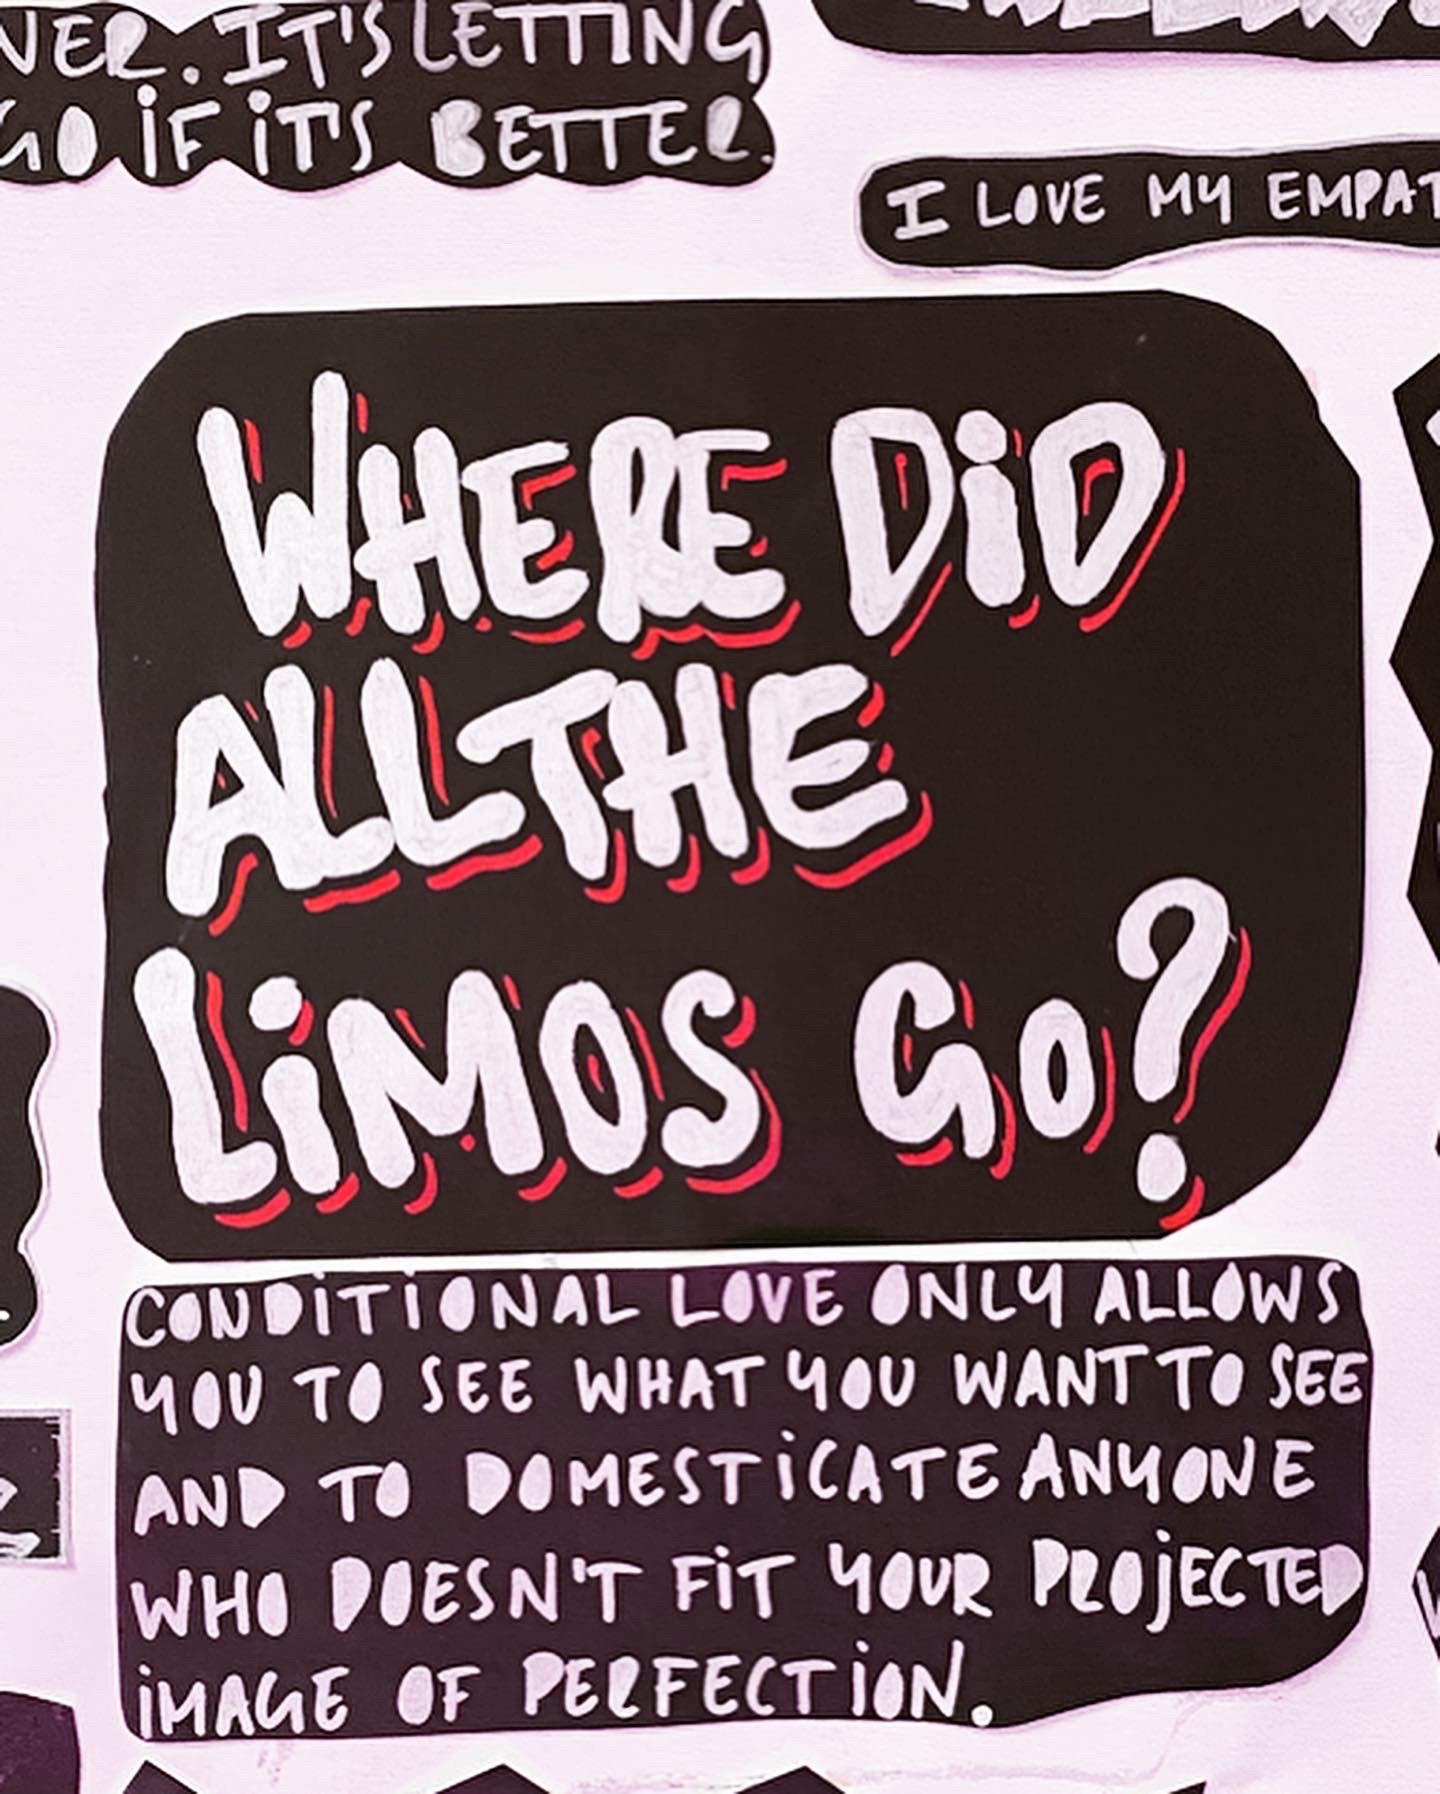 IT'S LETTING
GO IF IT'S BETTER.
I LOVE MY
WHERE DID
ALL THE
LIMOS GO?
CONDITIONAL LOVE ONLY ALLOWS
YOU TO SEE WHAT YOU WANT TO SEE
AND TO DOMESTICATE ANYONE
WHO DOESN'T FIT YOUR PROJECTED
IMAGE OF PERFECTION.